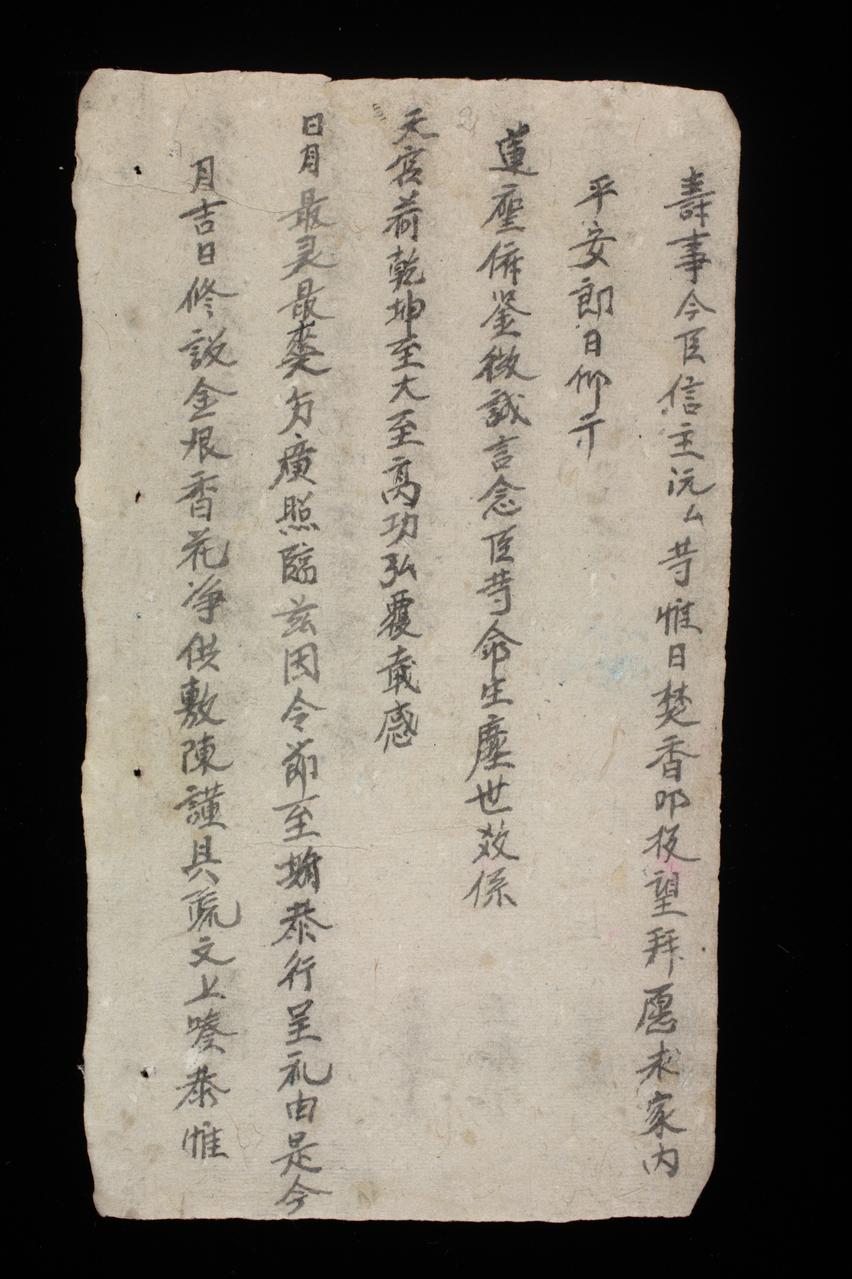 壽事今臣信主沅厶䓁惟日焚香叩扳望拜愿求家内
平安即日仰干
蓮座俯鉴微誠言念臣䓁命生塵世效係
天宮荷乾坤至大至髙功弘覆載感
日月最灵最廣照臨兹因令節至恭行呈礼由是今
月吉日修説金根香花净供敷陳謹具疏文上奏恭惟